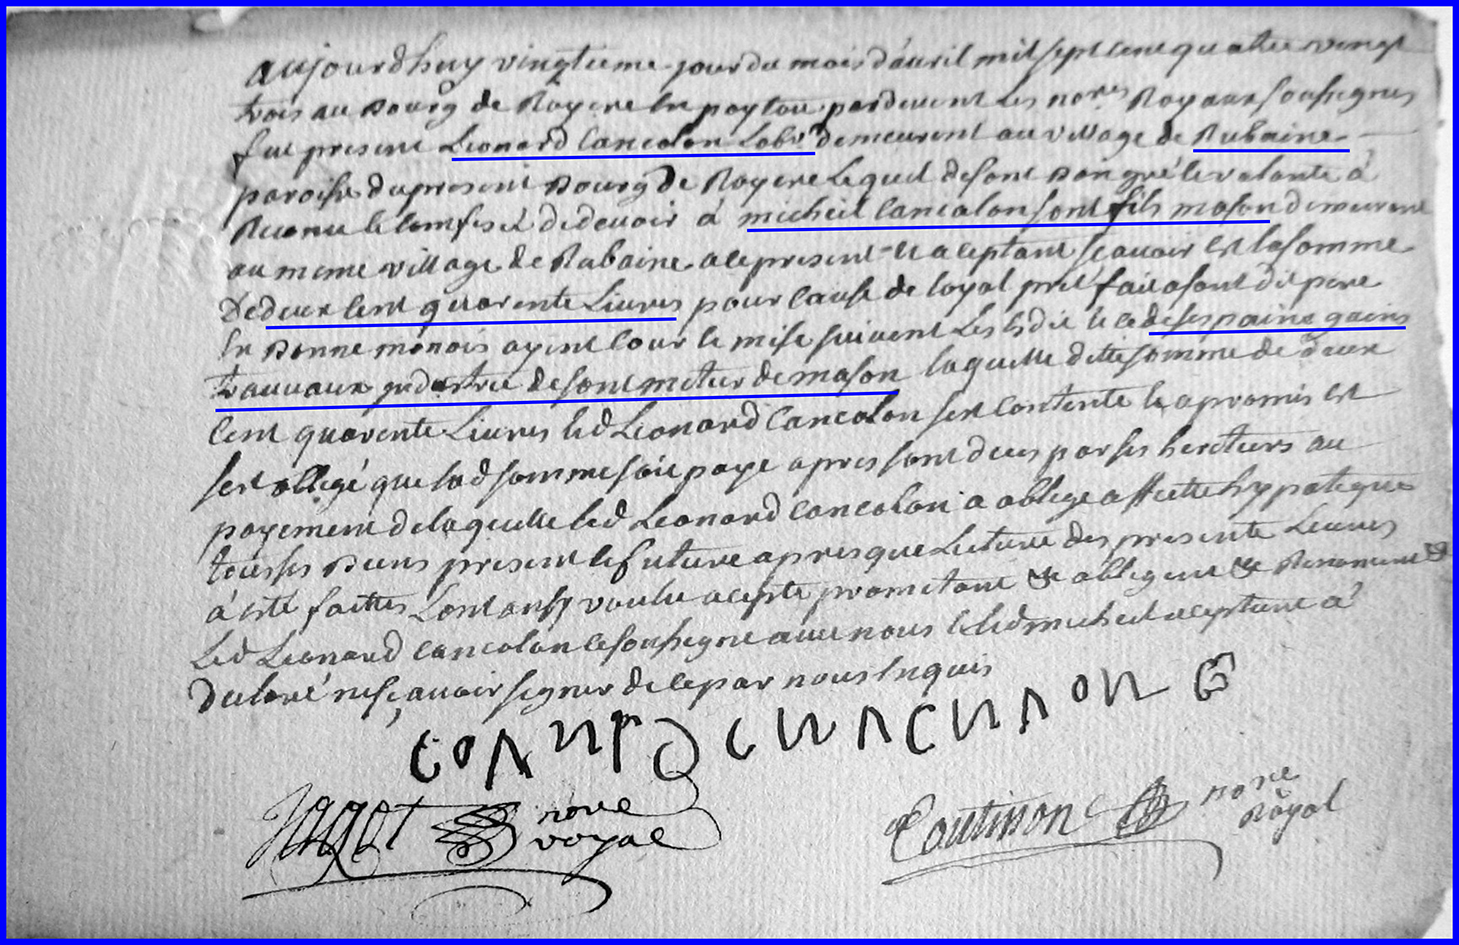 aujourdhuy vingtieme jour du mois davril mil sept cent quatre vingt
trois au Bourg de Royere en poytou pardevent les no.res Royaux soussignes
fut present Leonard Cancalon Lab.r demeurent au village de Rubaine
paroisse du present Bourg de Royere lequel de sont Bon gré le volonté à
Reconu le confesé de devoir à micheil Cancalon sont fils mason demeurant
au meme village de Rubaine a ce present et aceptant scavoir est la somme
De deux cent quarente Livres pour cause de loyal pret fait a sont dit pere
En Bonne monois ayent cour le mise suivent Les Edit le ce de ses paine gains
travaux industrie de sont metier de mason laquelle ditte somme de deux
Cent quarente Livres led Leonard Cancalon sest contente le a promis est
sest oblegé que lad somme soit paye apres sont deces par ses heretiers au
payement de laquelle led Leonard Cancalon a oblege affecte hypoteque
tous ses Biens present le future apres que Lecture des presente Leures
à esté faittes Lont ansy voulu acepte prometant &c oblegent &c Renoncent &c
Led Leonard Cancalon le soussigne avec nous led micheil aceptant à
Declaré ne sçavoir segner de ce par nous Enquis
Jagot no.re royal
Coutisson no.re Royal